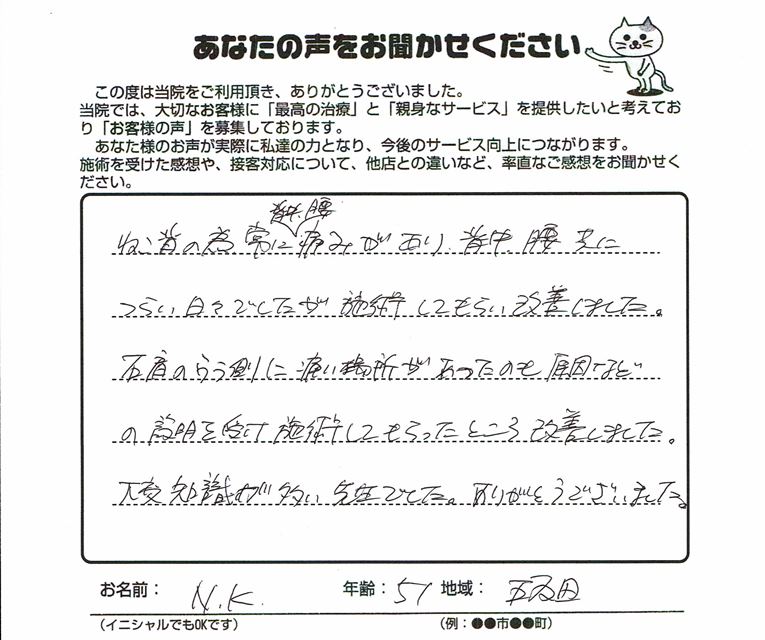 あなたの声をお聞かせください
この度は当院をご利用頂き、ありがとうございました。
当院では、大切なお客様に「最高の治療」と「親身なサービス」を提供したいと考えてお
り「お客様の声」を募集しております。
あなた様のお声が実際に私達の力となり、今後のサービス向上につながります。
施術を受けた感想や、接客対応について、他店との違いなど、率直なご感想をお聞かせく
ださい。
背中、腰
ねこ背の為 常に痛みがあり、背中、腰 共に
つらい日々でしたが 施術してもらい改善しました。
右肩のうら側に痛い場所があったのも原因など
の説明を受け 施術してもらったところ改善しました。
大変知識が多い先生でした。ありがとうございました。
お名前： N.K. 年齢： 51 地域： 五反田
（イニシャルでもOKです） （例：●●市●●町）